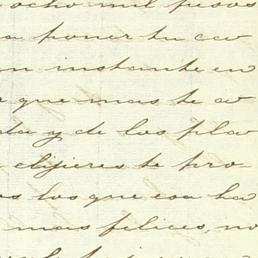 ocho mil pesos
a poner tu cav
un instante en
que mas te av
da y de los plav
elijieres te pro
os los que esa ha
mas felices, no